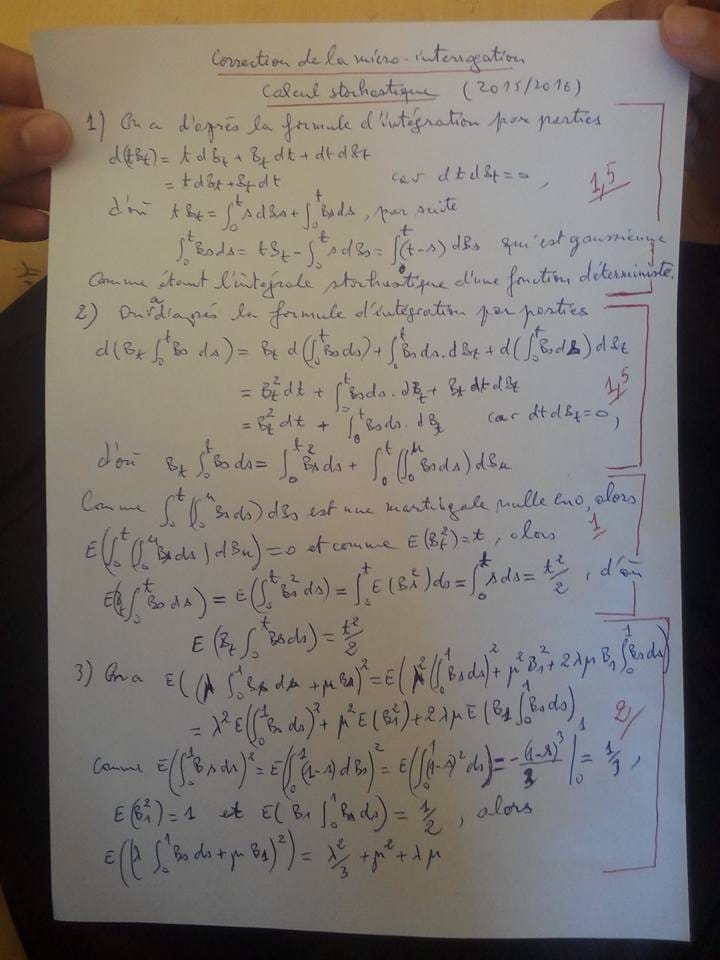 Correction de la micro-interrogation
Calcul stochastique (2015/2016)
1) On a d'après la formule d'intégration par parties
d(tB_t) = t dB_t + B_t dt + dt dB_t
= t dB_t + B_t dt car dt dB_t = 0,
1,5
d'où tB_t = ∫_0^t s dB_s + ∫_0^t B_s ds, par suite
∫_0^t B_s ds = tB_t - ∫_0^t s dB_s = ∫_0^t (t-s) dB_s qui est gaussienne
Comme étant l'intégrale stochastique d'une fonction déterministe.
2) On a d'après la formule d'intégration par parties
d(B_t ∫_0^t B_s ds) = B_t d(∫_0^t B_s ds) + ∫_0^t B_s ds . dB_t + d(∫_0^t B_s ds) dB_t
= B_t^2 dt + ∫_0^t B_s ds . dB_t + B_t dt dB_t
1,5
= B_t^2 dt + ∫_0^t B_s ds . dB_t car dt dB_t = 0,
d'où B_t ∫_0^t B_s ds = ∫_0^t B_s^2 ds + ∫_0^t (∫_0^u B_s ds) dB_u
Comme ∫_0^t (∫_0^u B_s ds) dB_s est une martingale nulle en 0, alors
1
E(∫_0^t (∫_0^u B_s ds) dB_u) = 0 et comme E(B_t^2) = t, alors
E(B_t ∫_0^t B_s ds) = E(∫_0^t B_s^2 ds) = ∫_0^t E(B_s^2) ds = ∫_0^t s ds = t^2/2, d'où
E(B_t ∫_0^t B_s ds) = t^2/2
3) On a E((λ ∫_0^1 B_s ds + μ B_1)^2 = E(λ^2 (∫_0^1 B_s ds)^2 + μ^2 B_1^2 + 2λμ B_1 ∫_0^1 B_s ds)
= λ^2 E(∫_0^1 B_s ds)^2 + μ^2 E(B_1^2) + 2λμ E(B_1 ∫_0^1 B_s ds)
2/
Comme E(∫_0^1 B_s ds)^2 = E(∫_0^1 (1-s) dB_s)^2 = E(∫_0^1 (1-s)^2 ds) = -(1-s)^3/3 |_0^1 = 1/3,
E(B_1^2) = 1 et E(B_1 ∫_0^1 B_s ds) = 1/2, alors
E((λ ∫_0^1 B_s ds + μ B_1)^2) = λ^2/3 + μ^2 + λμ